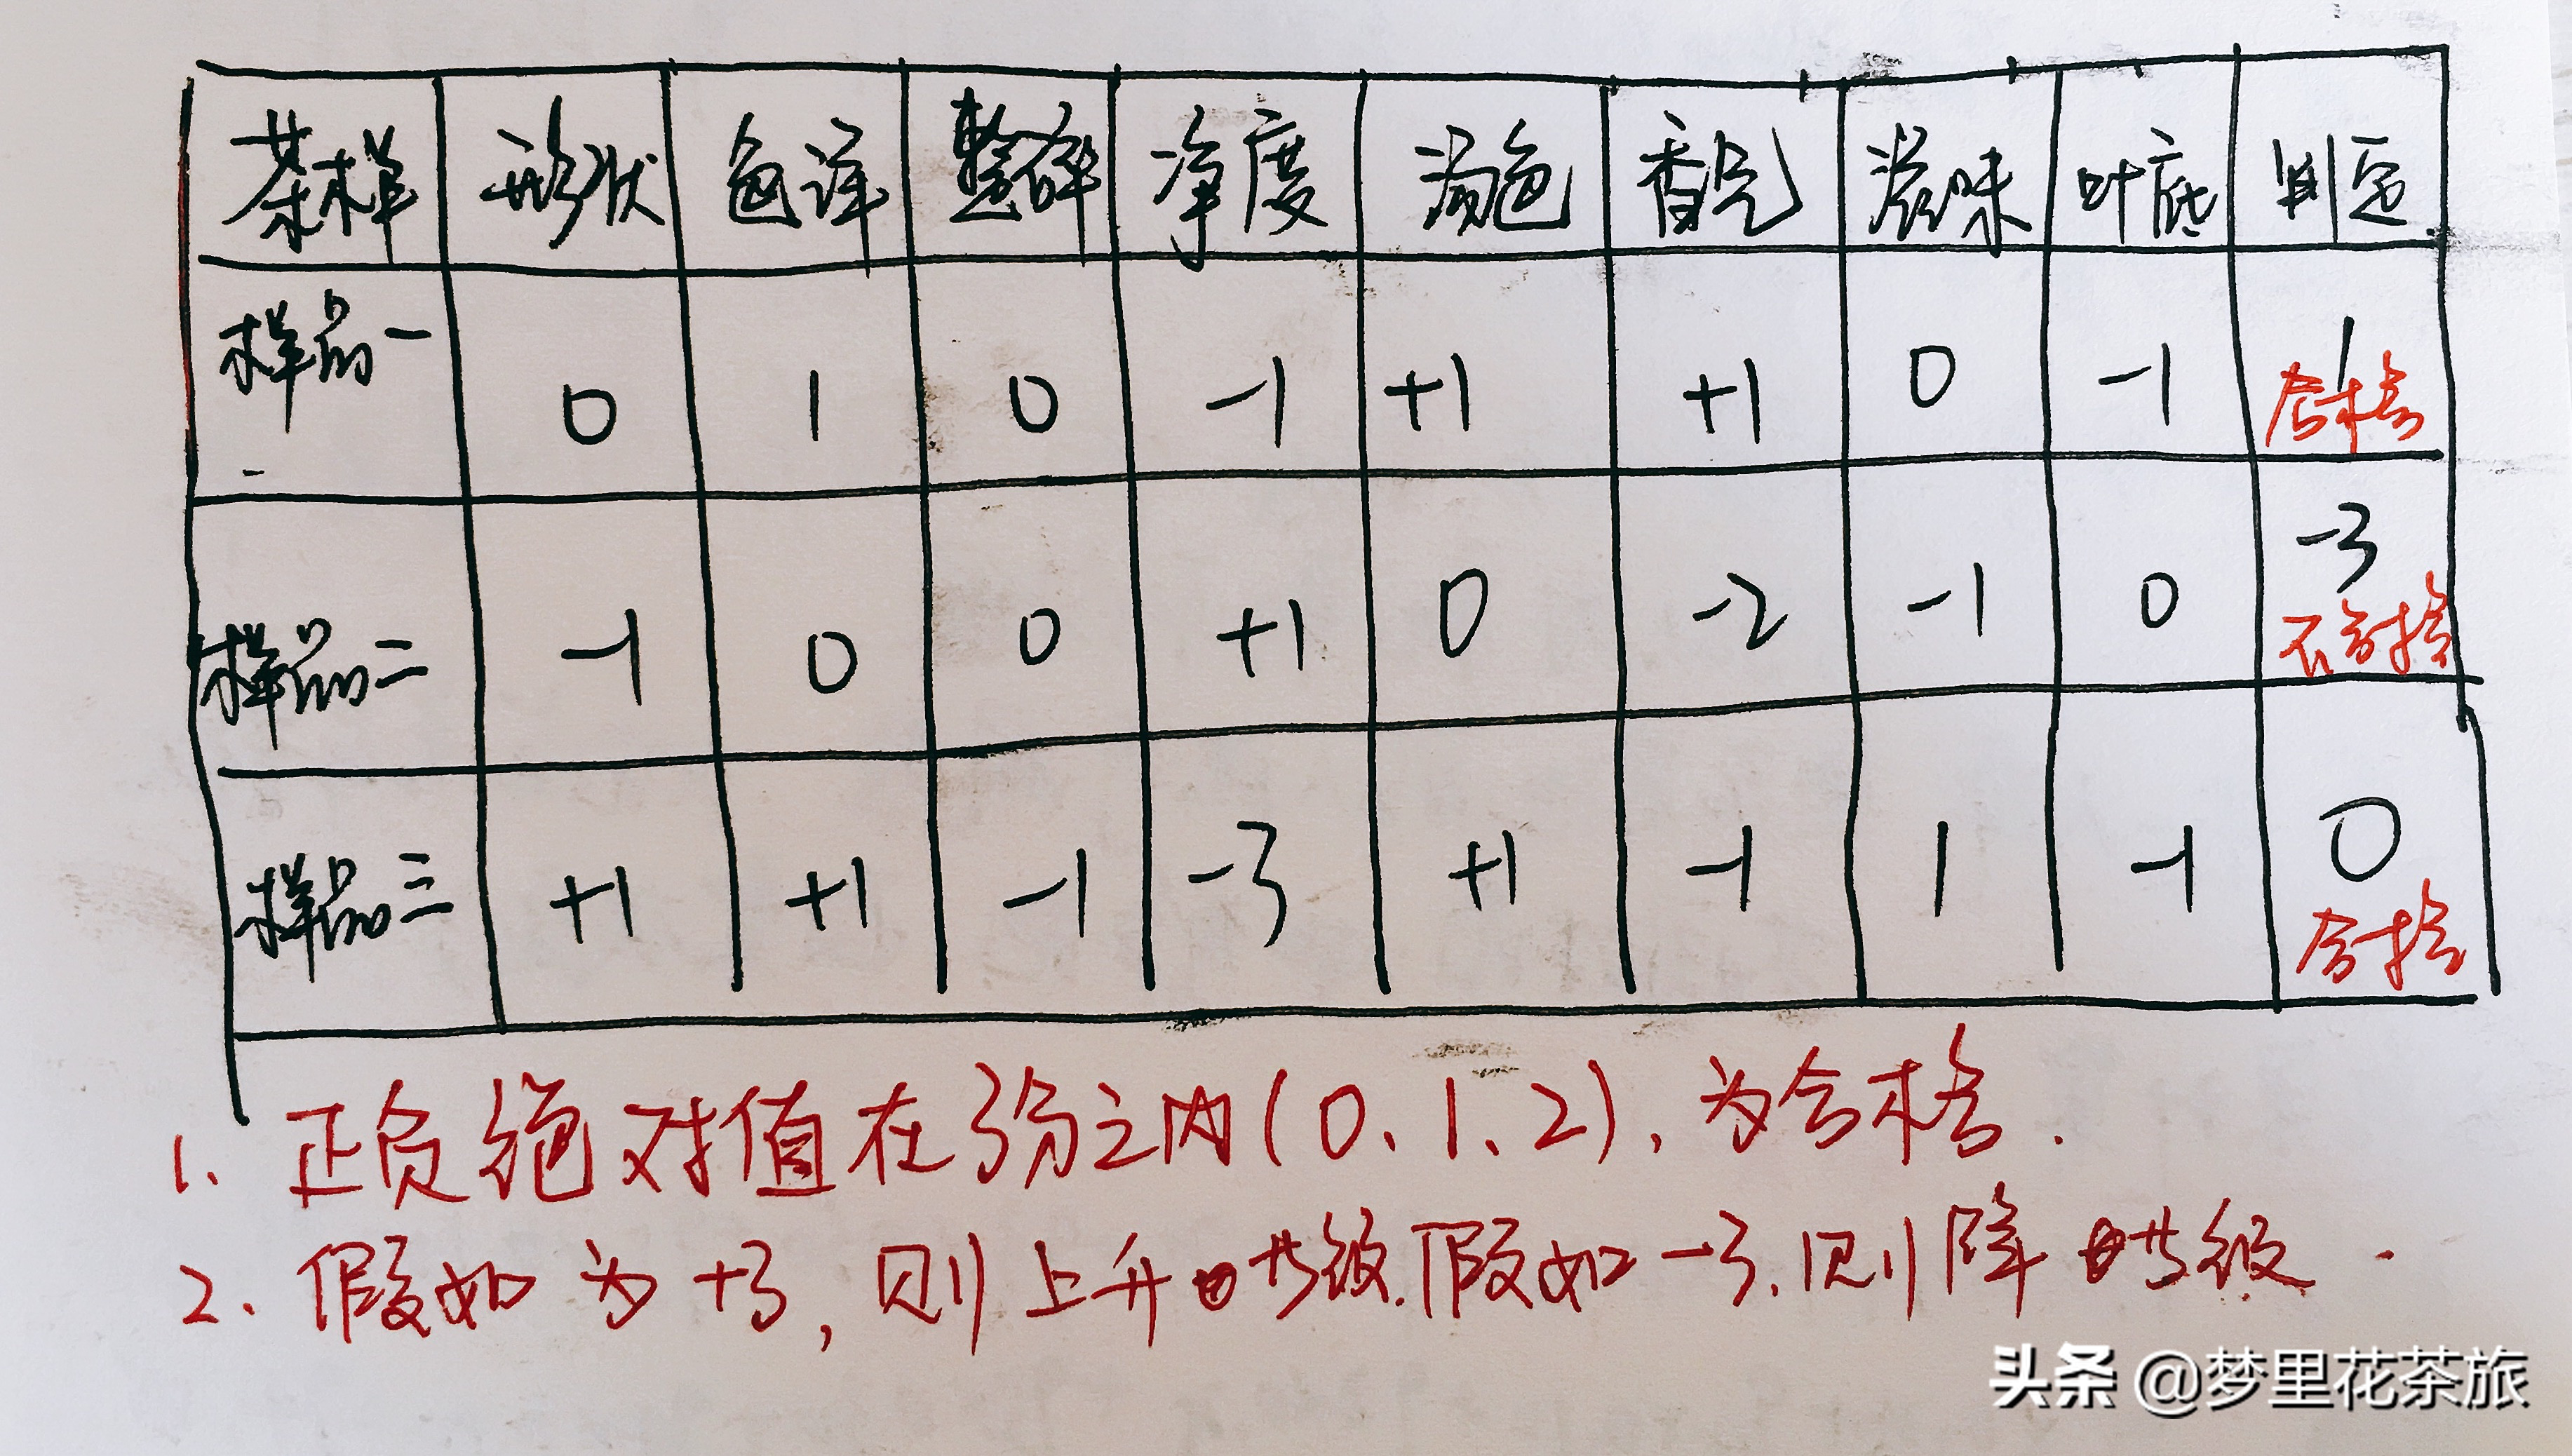 茶样 形状 色泽 整碎 净度 汤色 香气 滋味 叶底 判定
样品一 0 1 0 -1 +1 +1 0 -1 1 合格
样品二 -1 0 0 +1 0 -2 -1 0 -3 不合格
样品三 +1 +1 -1 -3 +1 -1 1 -1 0 合格
1、正负绝对值在3分之内(0、1、2),为合格.
2.假如为+3,则上升 级.假如-3.则降 级.
头条 @梦里花茶旅